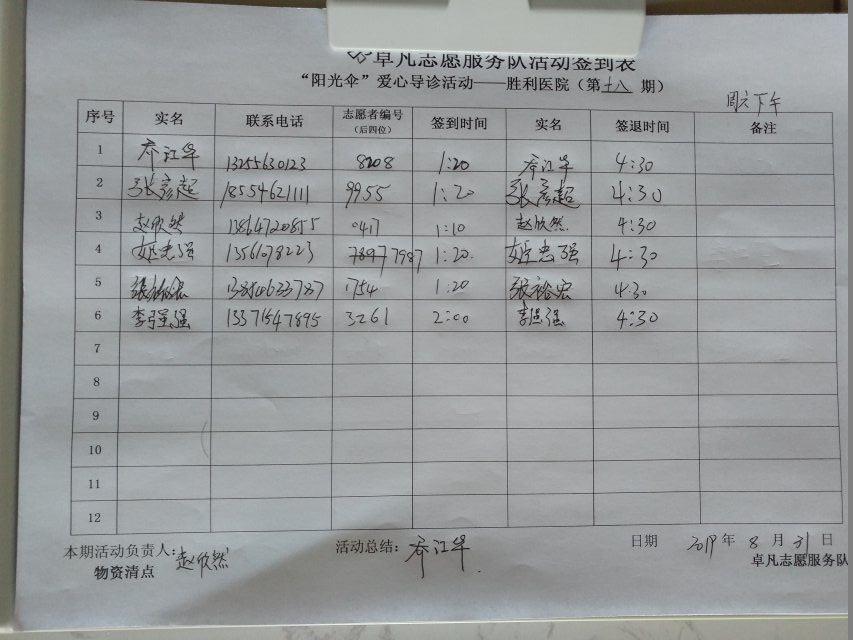 卓凡志愿服务队活动签到表
“阳光伞”爱心导诊活动——胜利医院（第十八期）
周六下午
序号 实名 联系电话 志愿者编号（后四位） 签到时间 实名 签退时间 备注
1 乔江华 13255630123 8208 1:20 乔江华 4:30
2 张彦超 18554621111 9955 1:20 张彦超 4:30
3 赵欣然 13864720855 0417 1:10 赵欣然 4:30
4 姬忠强 13561078223 7987 1:20 姬忠强 4:30
5 张裕宏 1754 1:20 张裕宏 4:30
6 李强强 13371547895 3261 2:00 李强强 4:30
7
8
9
10
11
12
本期活动负责人：赵欣然 活动总结：乔江华 日期 2019年8月31日
物资清点 卓凡志愿服务队